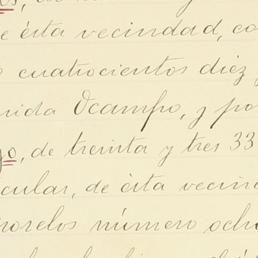 de ésta vecindad, co
cuatrocientos diez y
nida Ocampo, y po
o, de treinta y tres 33
cular, de ésta vecin
orelos número ocho